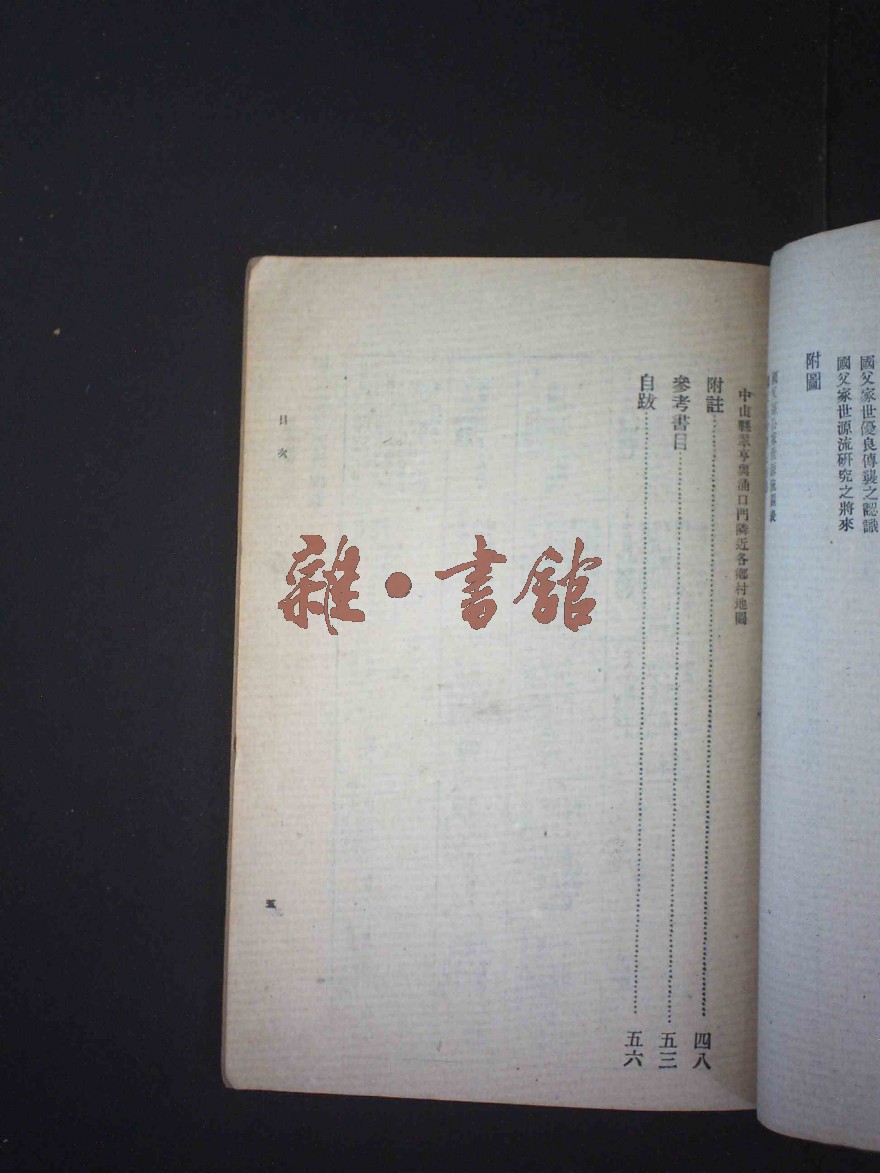 國父家世優良傳襲之認識
國父家世源流研究之將來
附圖
中山縣翠亨與涌口門隣近各鄉村地圖
附註 四八
參考書目 五三
自跋 五六
目次
五
雜·書館